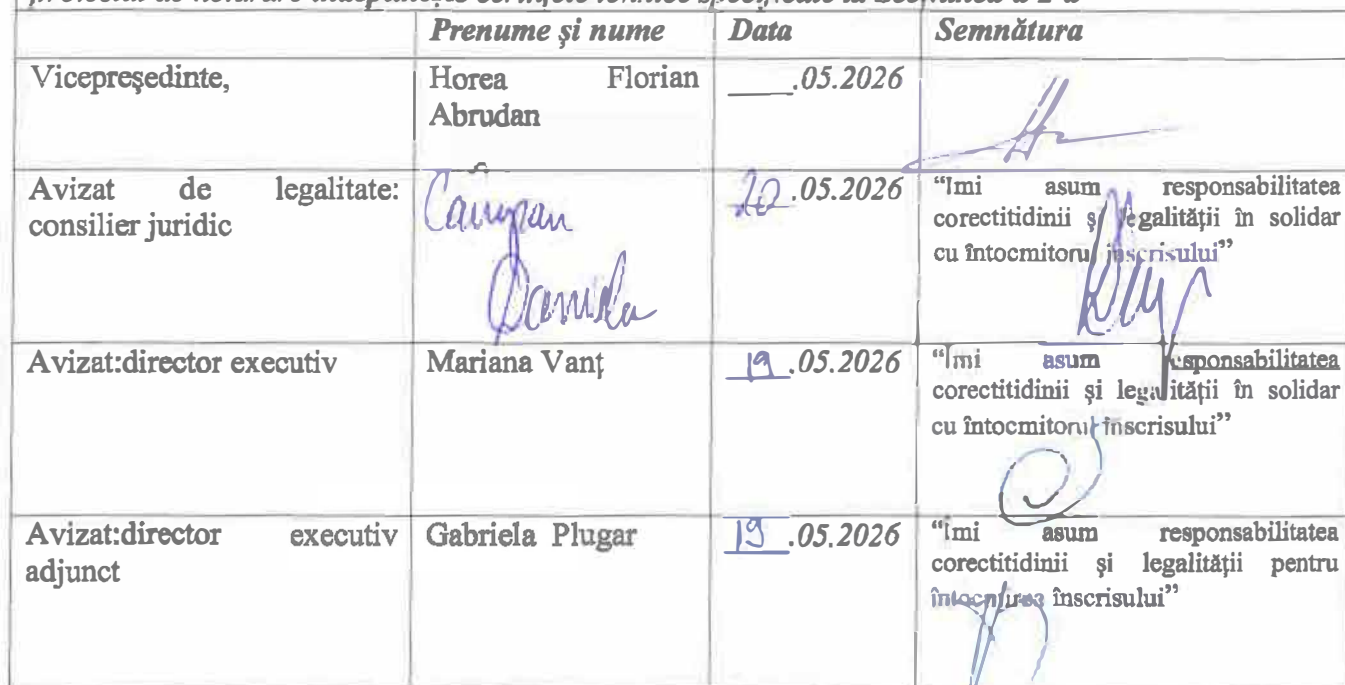 Prenume și nume Data Semnătura
Vicepreşedinte, Horea Florian ____.05.2026
Abrudan
Avizat de legalitate: Câmpan 20.05.2026 “Îmi asum responsabilitatea
consilier juridic Daniela corectitidinii și legalității în solidar
cu întocmitorul înscrisului”
Avizat:director executiv Mariana Vanț 19.05.2026 “Îmi asum responsabilitatea
corectitidinii și legalității în solidar
cu întocmitorul înscrisului”
Avizat:director executiv Gabriela Plugar 19.05.2026 “Îmi asum responsabilitatea
adjunct corectitidinii și legalității pentru
întocmirea înscrisului”